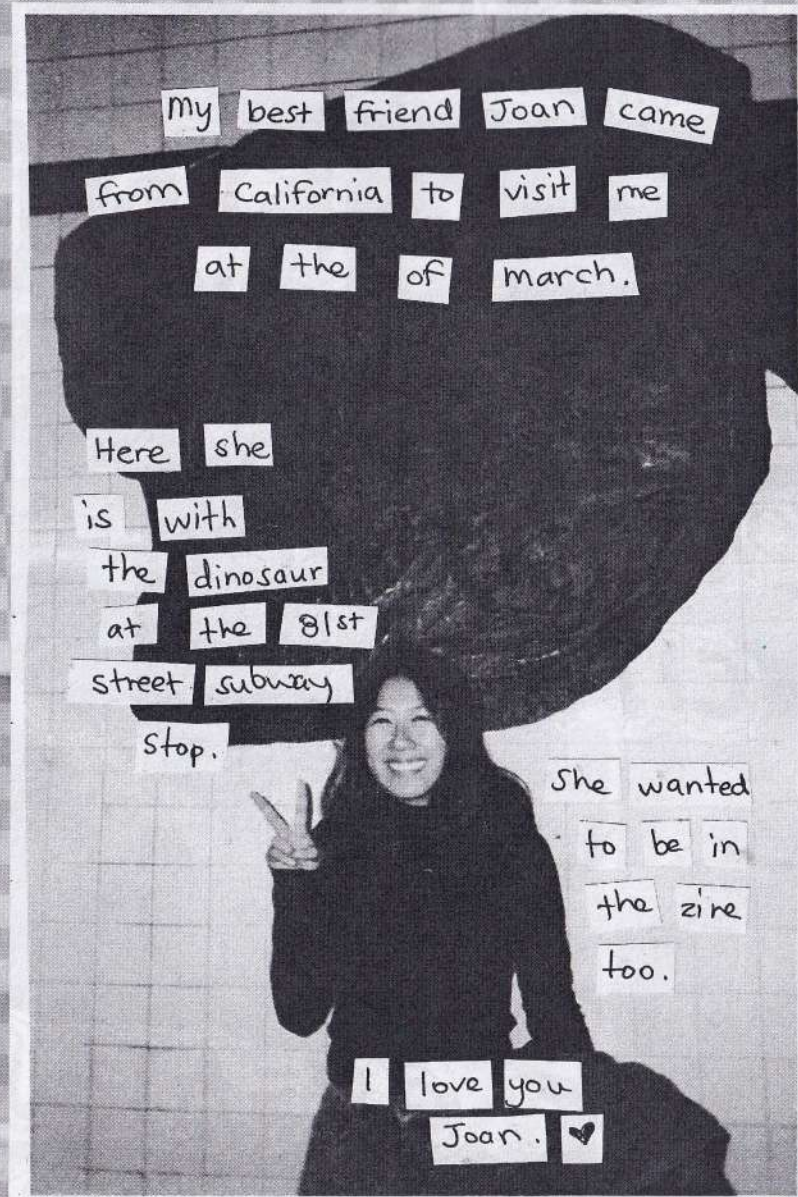 My best friend Joan came
from California to visit me
at the of march.
Here she
is with
the dinosaur
at the 81st
street subway
stop.
she wanted
to be in
the zine
too.
I love you
Joan. ♥